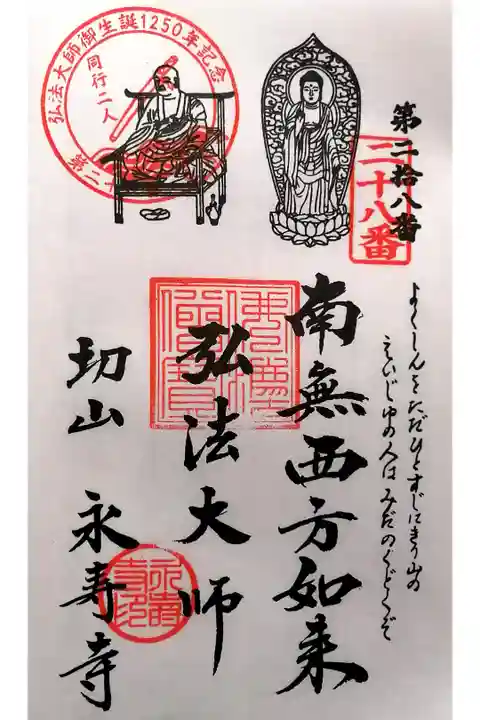 第二拾八番
二十八番
よくしんをただひとすじにきり山の
えいじゆの人はみだのくどくぞ
南無西方如来
弘法大師
切山 永寿寺
弘法大師御生誕1250年記念
同行二人
佛法僧寶
永壽寺印